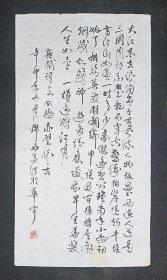 大江东去浪淘尽千古风流人物故垒西边人道是
三国周郎赤壁乱石穿空惊涛拍岸卷起千堆
雪江山如画一时多少豪杰遥想公瑾当年小乔初
嫁了雄姿英发羽扇纶巾谈笑间樯橹灰飞
烟灭故国神游多情应笑我早生华发
人生如梦一尊还酹江月
苏轼词念奴娇赤壁怀古
辛卯年